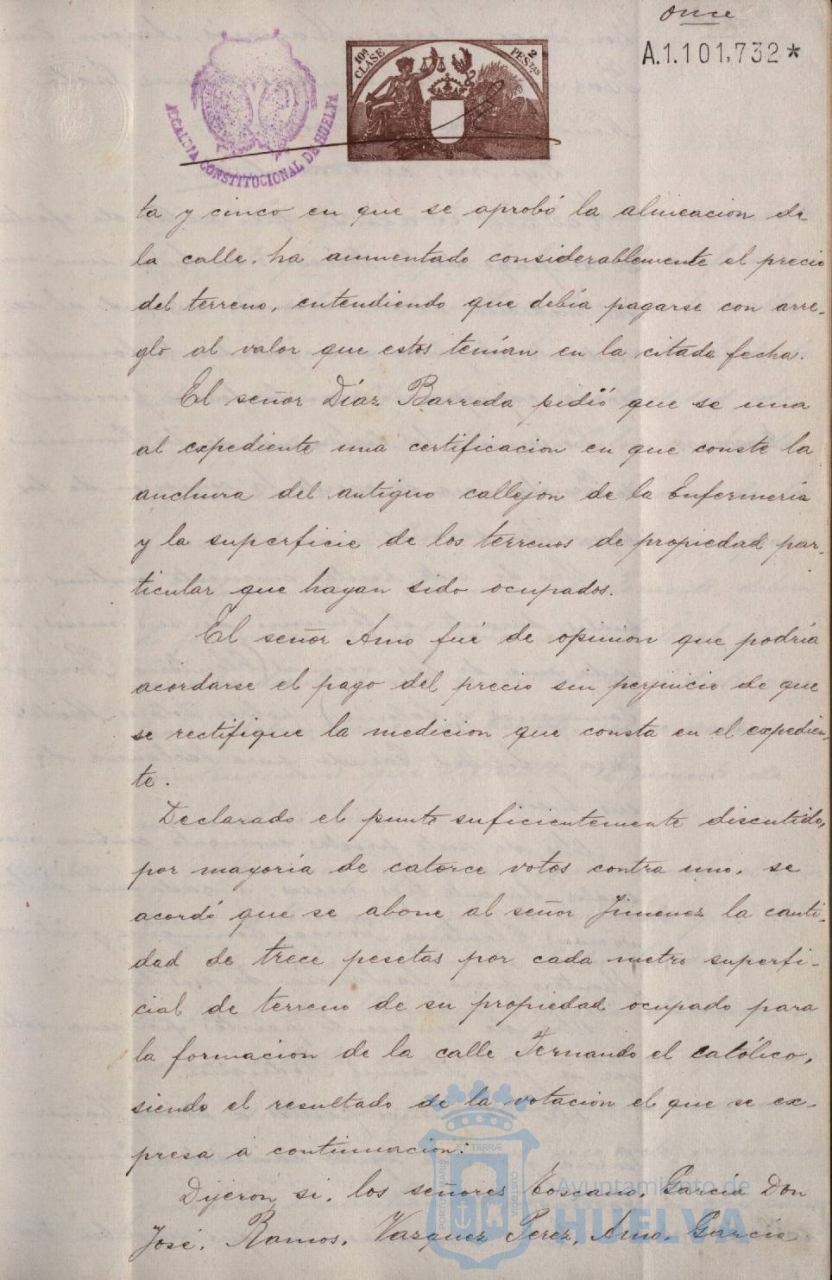 once
A.1.101,732*
10ª CLASE
2 PESTAS
ALCALDIA CONSTITUCIONAL DE HUELVA
ta y cinco en que se aprobó la alineacion de
la calle, ha aumentado considerablemente el precio
del terreno, entendiendo que debía pagarse con arre-
glo al valor que estos tenían en la citada fecha.
El señor Díaz Barreda pidió que se una
al expediente una certificacion en que conste la
anchura del antiguo callejon de la Enfermería
y la superficie de los terrenos de propiedad par-
ticular que hayan sido ocupados.
El señor Amo fué de opinion que podría
acordarse el pago del precio sin perjuicio de que
se rectifique la medicion que consta en el expedien-
te.
Declarado el punto suficientemente discutido,
por mayoría de catorce votos contra uno, se
acordó que se abone al señor Jimenez la canti-
dad de trece pesetas por cada metro superfi-
cial de terreno de su propiedad ocupado para
la formacion de la calle Fernando el católico,
siendo el resultado de la votación el que se ex-
presa á continuacion:
Dijeron si, los señores Toscano, García Don
José, Ramos, Vazquez Perez, Amo, García
Ayuntamiento de
HUELVA